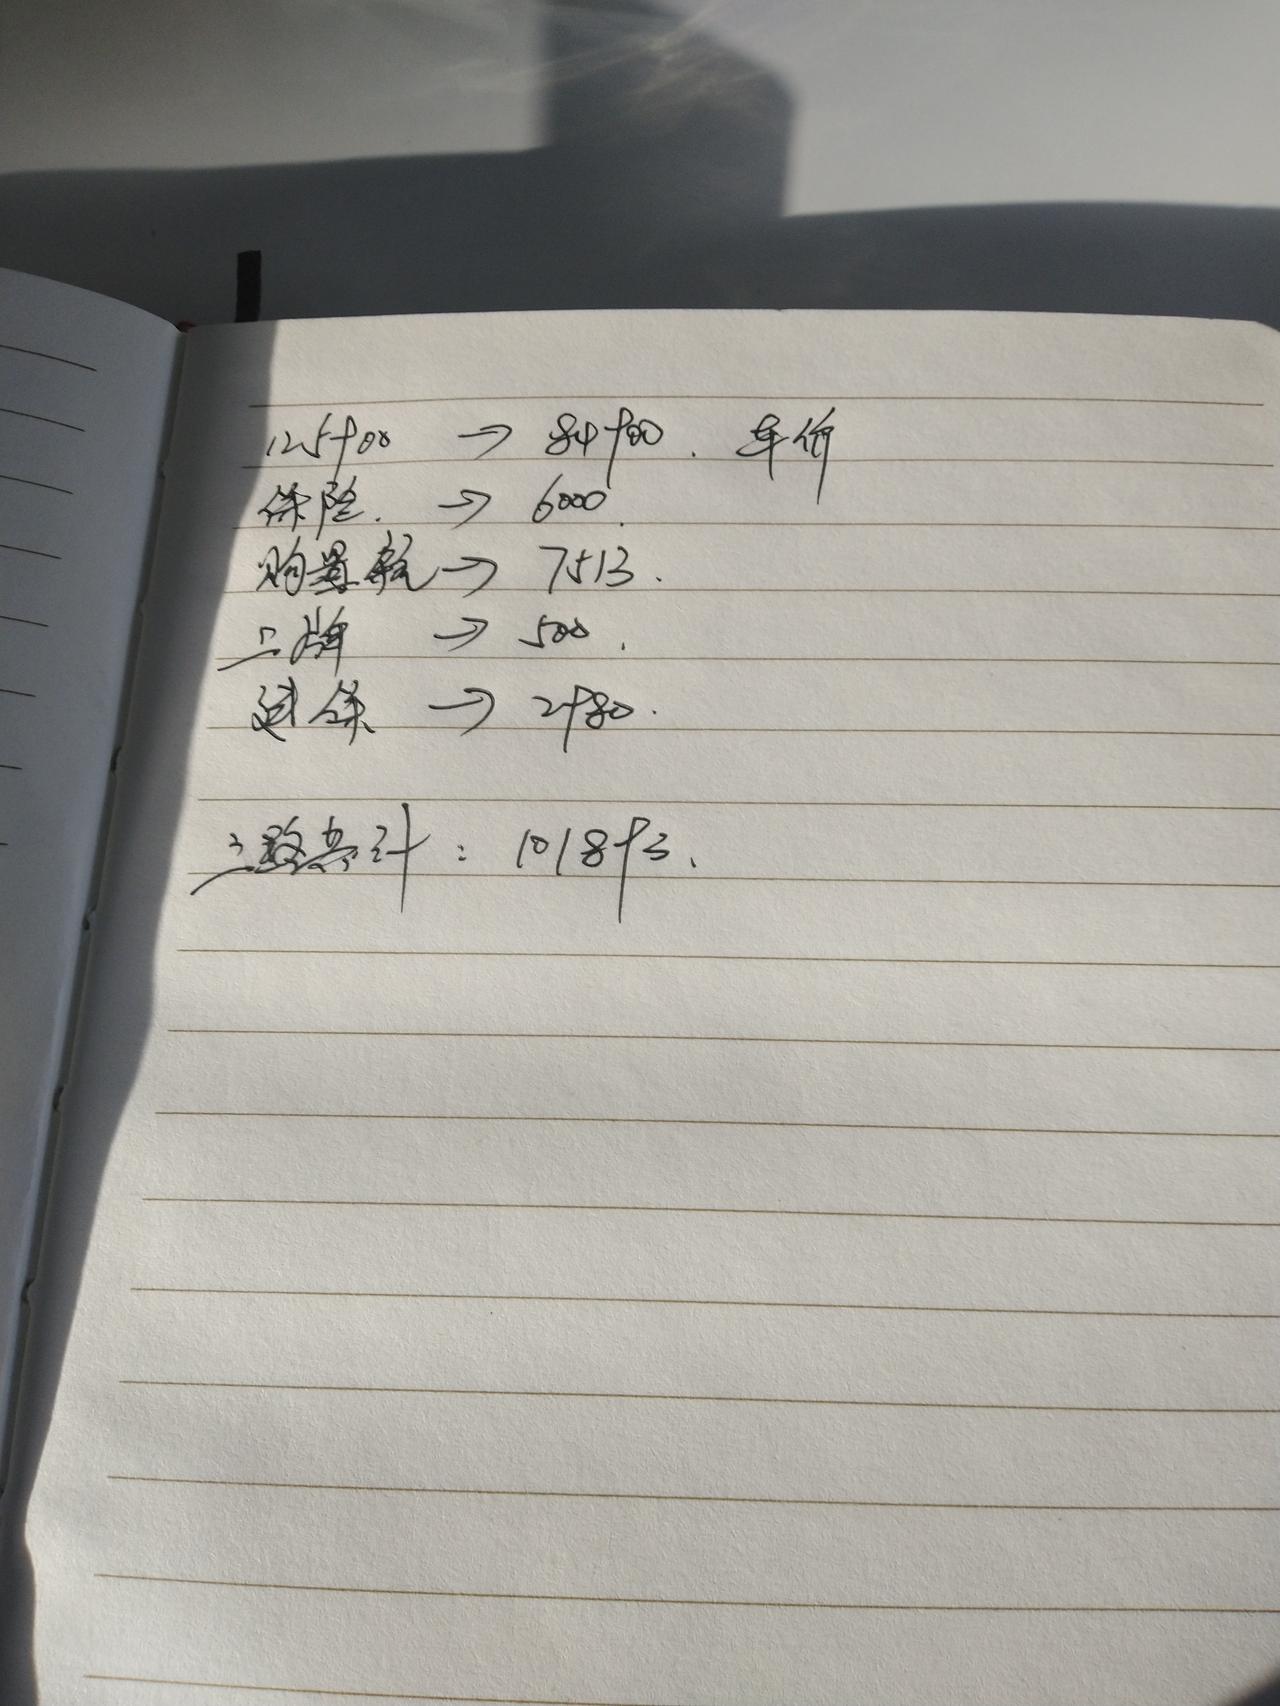 125900 → 84900. 车价
保险. → 6000.
购置税 → 7513.
上牌 → 500.
延保 → 2980.
全款共计: 101893.